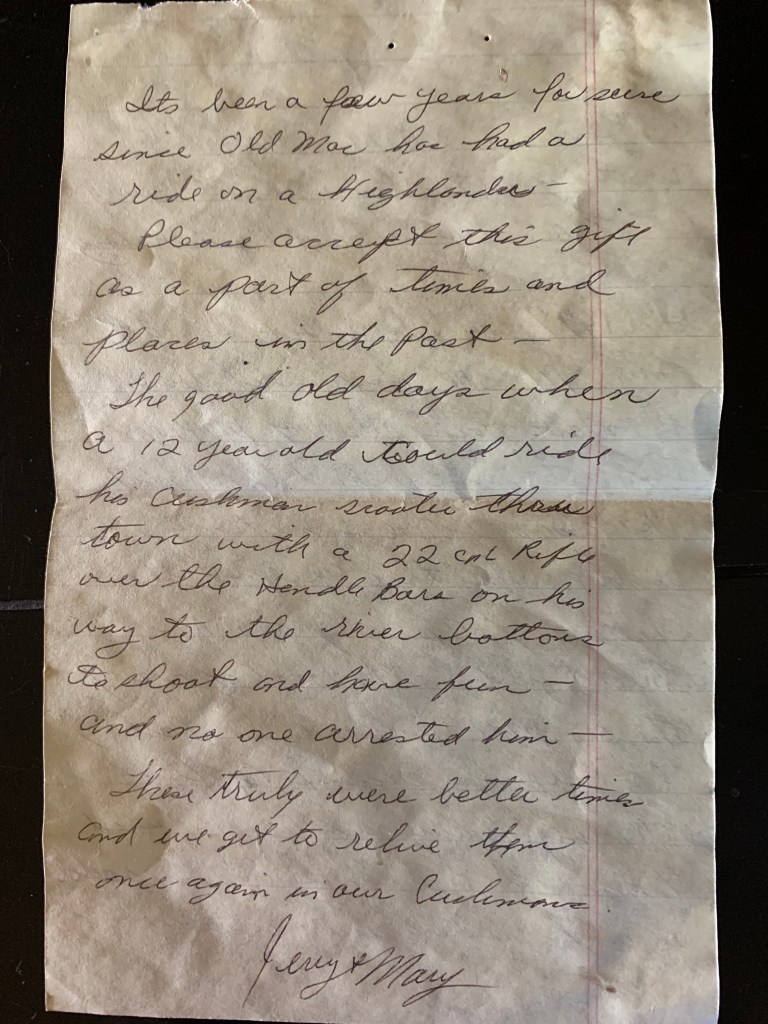 Its been a few years for sure
since Old Mac has had a
ride on a Highlander –
Please accept this gift
as a part of times and
places in the Past –
The good old days when
a 12 year old could ride
his Cushman scooter thru
town with a 22 cal Rifle
over the Handle Bars on his
way to the river bottoms
to shoot and have fun –
and no one arrested him –
These truly were better times
and we get to relive them
once again in our Cushmans.
Jerry & Mary